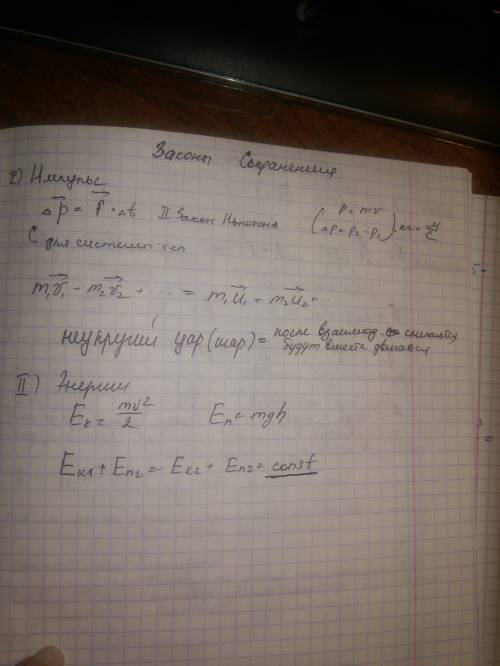 Законы Сохранения
2) Импульс
Δp = F · Δt II Закон Ньютона (p = mv
Δp = p2 - p1) · кг · м/с
С для системы тел
m1v1 - m2v2 + ... = m1u1 + m2u2 + ...
неупругий удар (шар) = после взаимод. слипаются
будут вместе двигаться
II) Энергии
Eк = mv²/2 Eп = mgh.
Eк1 + Eп1 = Eк2 + Eп2 = const
5-
3
=